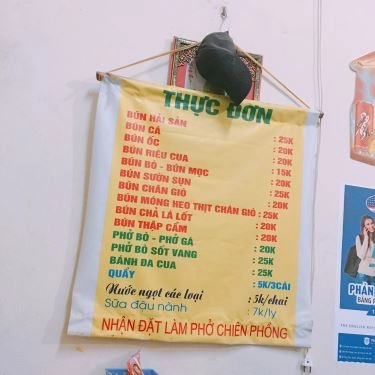 THỰC ĐƠN
BÚN HẢI SẢN
BÚN CÁ : 25K
BÚN ỐC : 20K
BÚN RIÊU CUA : 20K
BÚN BÒ - BÚN MỌC : 15K
BÚN SƯỜN SỤN : 20K
BÚN CHÂN GIÒ : 25K
BÚN MÓNG HEO THỊT CHÂN GIÒ : 25K
BÚN CHẢ LÁ LỐT : 20K
BÚN THẬP CẨM : 20K
PHỞ BÒ - PHỞ GÀ : 20K
PHỞ BÒ SỐT VANG : 25K
BÁNH ĐA CUA : 25K
QUẨY : 5K/3CÁI
Nước ngọt các loại : 5k/chai
Sữa đậu nành : 7k/ly
NHẬN ĐẶT LÀM PHỞ CHIÊN PHỒNG
PHÂN
BẰNG P